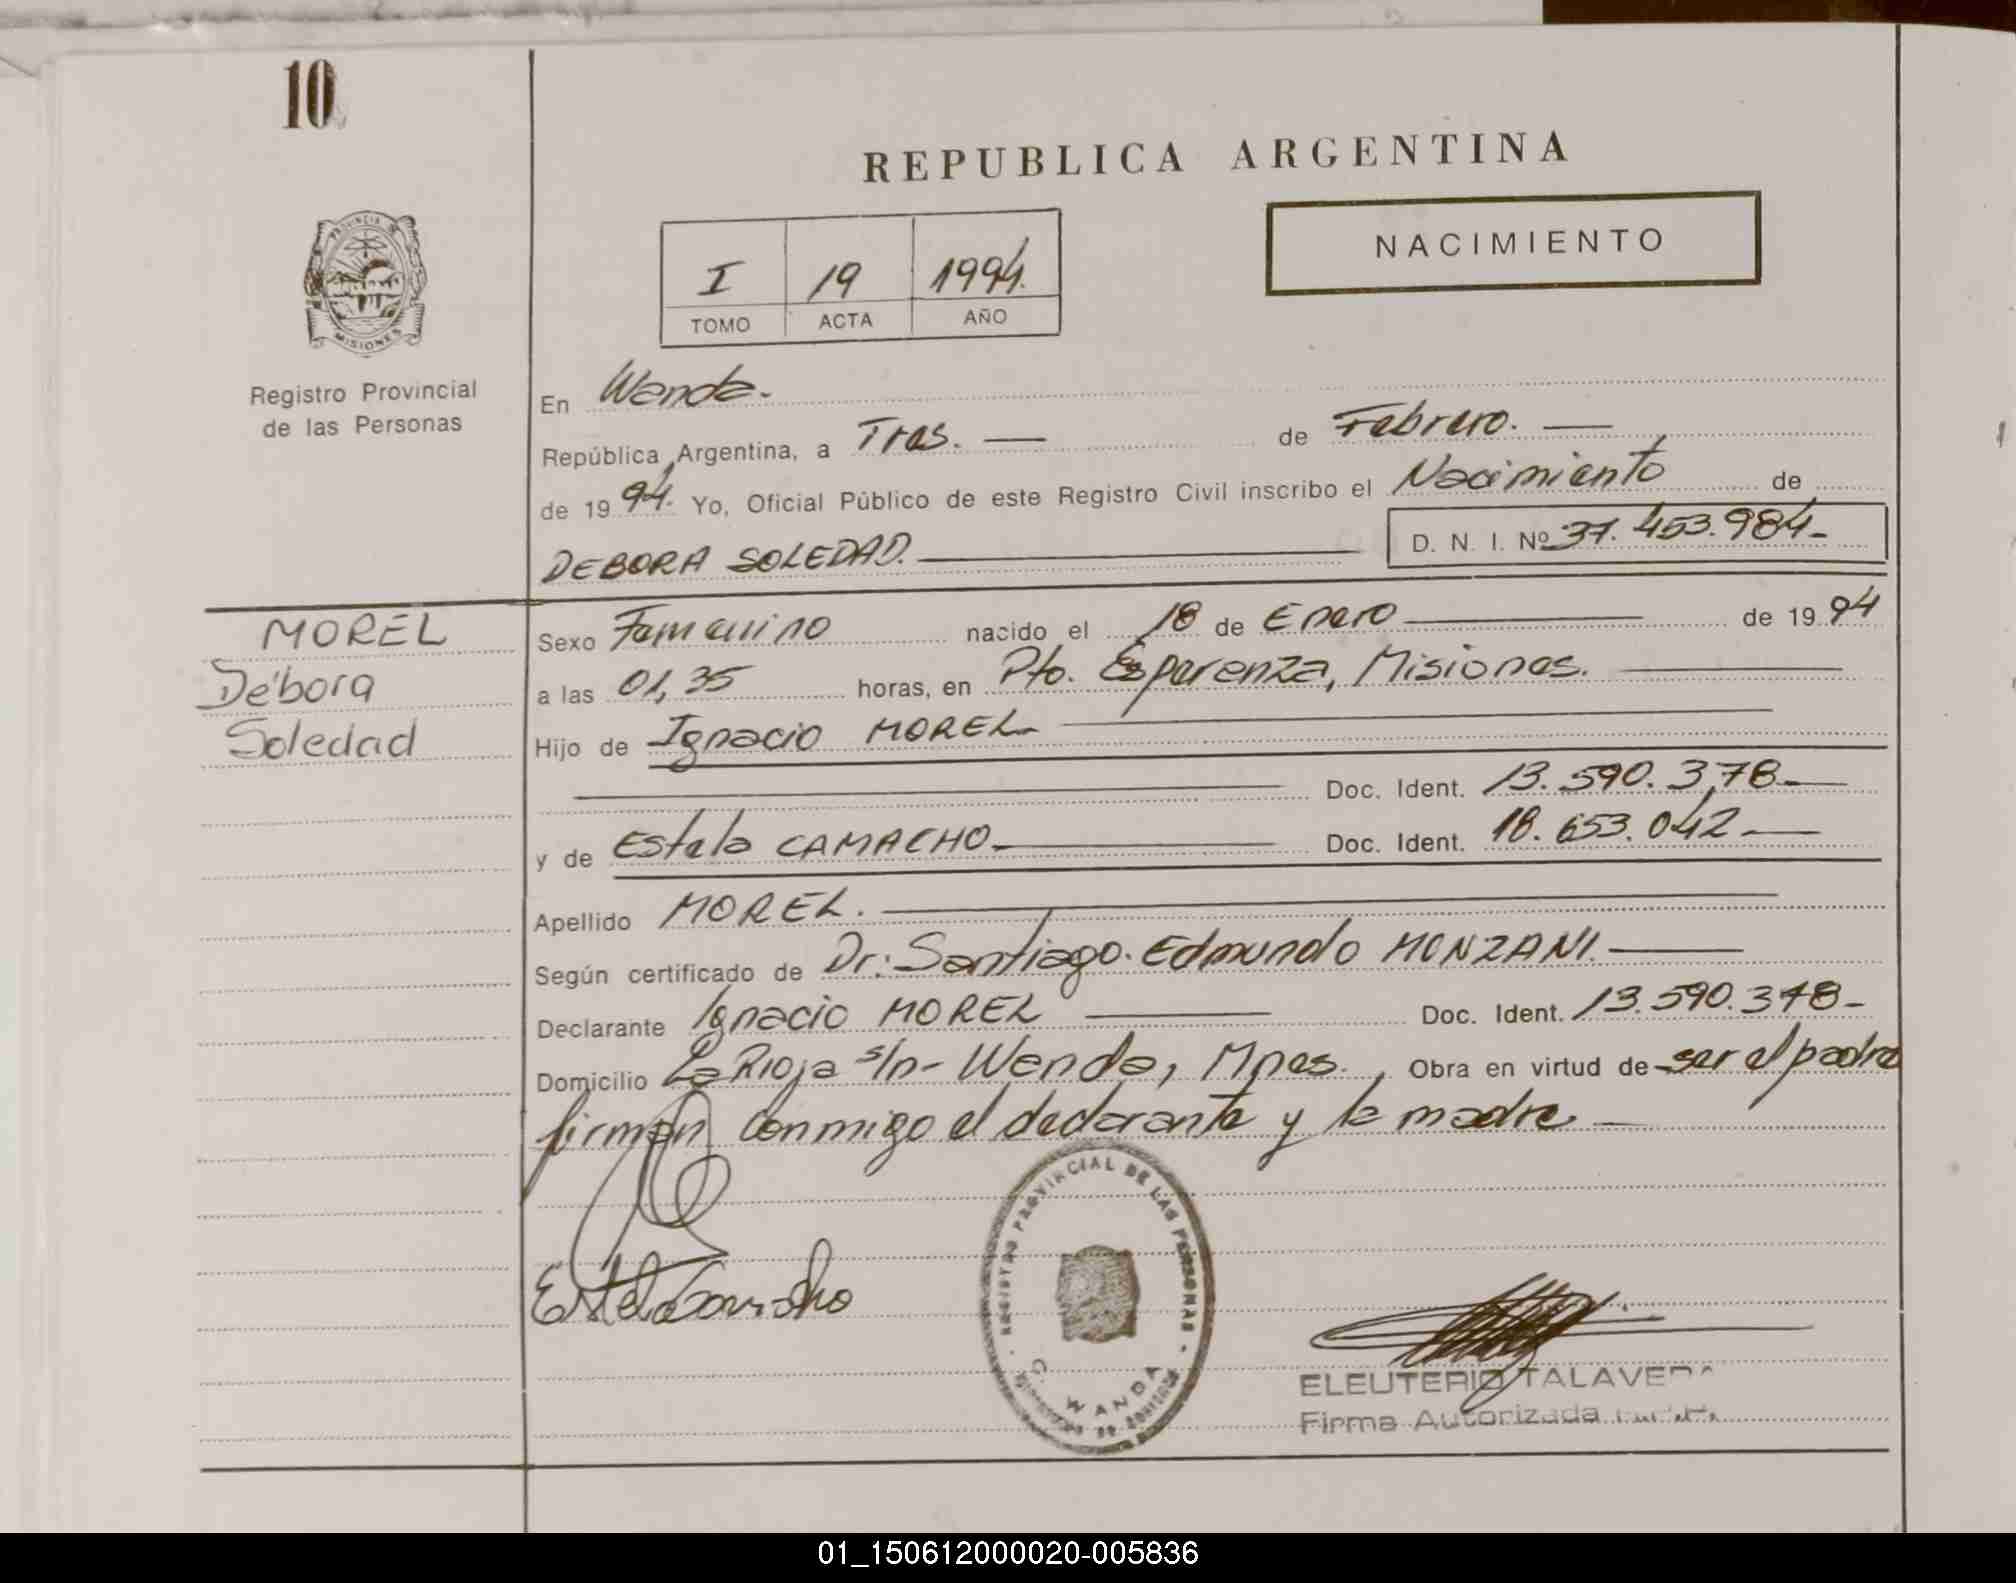 10
REPUBLICA ARGENTINA
NACIMIENTO
I 19 1994.
TOMO ACTA AÑO
PROVINCIA DE
MISIONES
Registro Provincial
de las Personas
En Wanda.
República Argentina, a Tres. — de Febrero. —
de 19 94. Yo, Oficial Público de este Registro Civil inscribo el Nacimiento de
DEBORA SOLEDAD. — D. N. I. Nº 37.453.984-
MOREL
Débora
Soledad
Sexo Femenino nacido el 18 de Enero — de 19 94
a las 01,35 horas, en Pto. Esperanza, Misiones. —
Hijo de Ignacio MOREL —
— Doc. Ident. 13.590.378 —
y de Estela CAMACHO — Doc. Ident. 18.653.042 —
Apellido MOREL. —
Según certificado de Dr: Santiago Edmundo MONZANI. —
Declarante Ignacio MOREL — Doc. Ident. 13.590.378-
Domicilio La Rioja s/n- Wanda, Mnes. , Obra en virtud de ser el padre
firman conmigo el declarante y la madre —
Estela Camacho
REGISTRO PROVINCIAL DE LAS PERSONAS
WANDA
ELEUTERIO TALAVERA
Firma Autorizada
01_150612000020-005836